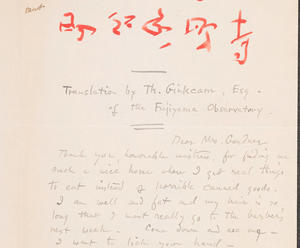 Translation by Th. Ginkcam, Esq.
of the Fujiyama Observatory.
Dear Mrs. Gardner
Thank you, honorable mistress, for finding me
such a nice home where I get real things
to eat instead of horrible canned goods.
I am well and fat and my hair is so
long that I must really go to the barber's
next week. Come down and see me—
I want to lick your hand—